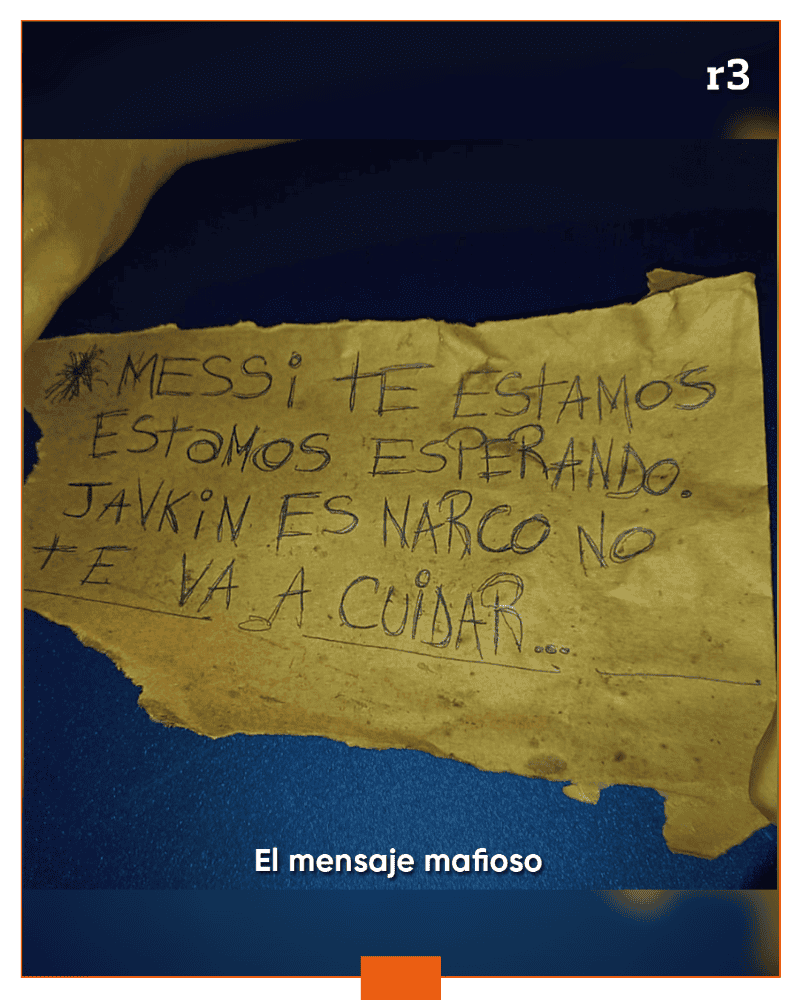 r3
MESSi tE EStAMOS
EStaMOS ESPERANDO.
JAVKiN ES NARCO NO
tE VA A CUiDAR...
El mensaje mafioso